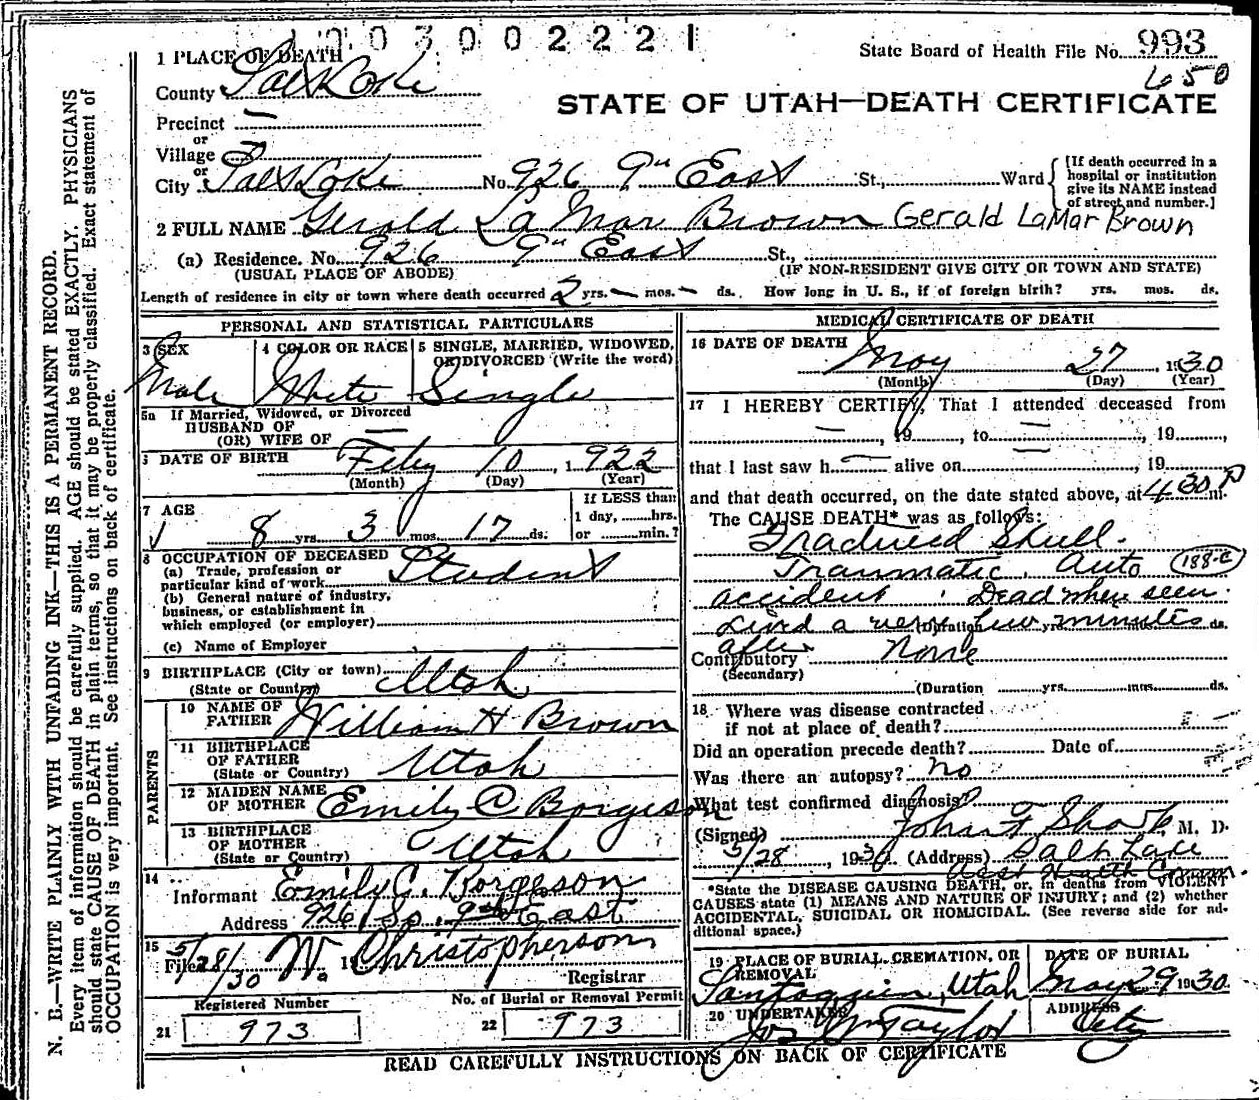 1 0 0 3 0 0 2 2 2 1
State Board of Health File No. 993
650
1 PLACE OF DEATH
County Salt Lake
STATE OF UTAH—DEATH CERTIFICATE
Precinct —
or
Village
or
City Salt Lake No. 926 9th East St., Ward
[If death occurred in a hospital or institution give its NAME instead of street and number.]
2 FULL NAME Gerald La Mar Brown Gerald LaMar Brown
(a) Residence. No. 926 9th East St.,
(USUAL PLACE OF ABODE) (IF NON-RESIDENT GIVE CITY OR TOWN AND STATE)
Length of residence in city or town where death occurred 2 yrs. — mos. — ds. How long in U. S., if of foreign birth? yrs. mos. ds.
PERSONAL AND STATISTICAL PARTICULARS
3 SEX
Male
4 COLOR OR RACE
White
5 SINGLE, MARRIED, WIDOWED, OR DIVORCED (Write the word)
Single
5a If Married, Widowed, or Divorced
HUSBAND OF
(OR) WIFE OF —
DATE OF BIRTH Feby 10, 1922
(Month) (Day) (Year)
7 AGE
8 yrs. 3 mos. 17 ds.
If LESS than
1 day, ......hrs.
or ......min.?
8 OCCUPATION OF DECEASED
(a) Trade, profession or
particular kind of work Student
(b) General nature of industry,
business, or establishment in
which employed (or employer)
(c) Name of Employer
9 BIRTHPLACE (City or town)
(State or Country) Utah
PARENTS
10 NAME OF
FATHER William H Brown
11 BIRTHPLACE
OF FATHER
(State or Country) Utah
12 MAIDEN NAME
OF MOTHER Emily C Borgeson
13 BIRTHPLACE
OF MOTHER
(State or Country) Utah
14
Informant Emily C. Borgeson
Address 926 So. 9th East
15
Filed 5/28/30 19 W. Christopherson
Registrar
Registered Number
21 973
No. of Burial or Removal Permit
22 973
MEDICAL CERTIFICATE OF DEATH
16 DATE OF DEATH
May 27, 1930
(Month) (Day) (Year)
17 I HEREBY CERTIFY, That I attended deceased from
—, 19......, to —, 19......,
that I last saw h— alive on —, 19......
and that death occurred, on the date stated above, at 4 30 P m.
The CAUSE DEATH* was as follows:
Fractured Skull.
Traumatic. Auto 188-C
accident. Dead when seen.
Lived a very few minutes
(Duration yrs. ds.
after
Contributory None
(Secondary)
(Duration yrs. mos. ds.
18 Where was disease contracted
if not at place of death?
Did an operation precede death? Date of
Was there an autopsy? no
What test confirmed diagnosis?
(Signed) John F Sharp M. D.
5/28, 1930 (Address) Salt Lake
Asst Health Comm.
*State the DISEASE CAUSING DEATH, or, in deaths from VIOLENT
CAUSES state (1) MEANS AND NATURE OF INJURY; and (2) whether
ACCIDENTAL, SUICIDAL OR HOMICIDAL. (See reverse side for ad-
ditional space.)
19 PLACE OF BURIAL, CREMATION, OR
REMOVAL
Santaquin, Utah
DATE OF BURIAL
May 29 1930
20 UNDERTAKER
Jos Wm Taylor
ADDRESS
City
READ CAREFULLY INSTRUCTIONS ON BACK OF CERTIFICATE
N. B.—WRITE PLAINLY WITH UNFADING INK—THIS IS A PERMANENT RECORD.
Every item of information should be carefully supplied. AGE should be stated EXACTLY. PHYSICIANS
should state CAUSE OF DEATH in plain terms, so that it may be properly classified. Exact statement of
OCCUPATION is very important. See instructions on back of certificate.